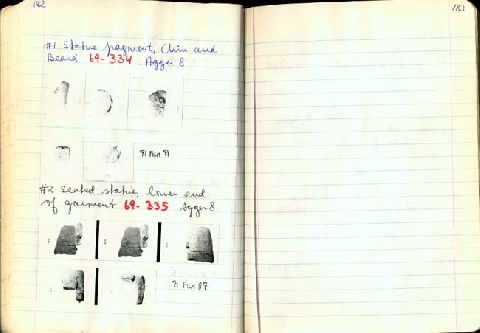 182
#1 Statue fragment, Chin and
Beard 69-334 Agger 8
#2 Seated statue, lower end
of garment 69-335 Agger 8